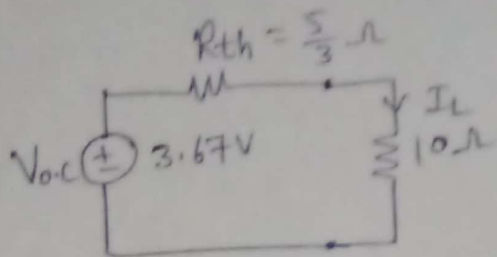 Rth = 5/3 Ω
IL
Vo.c ± 3.67V
10Ω